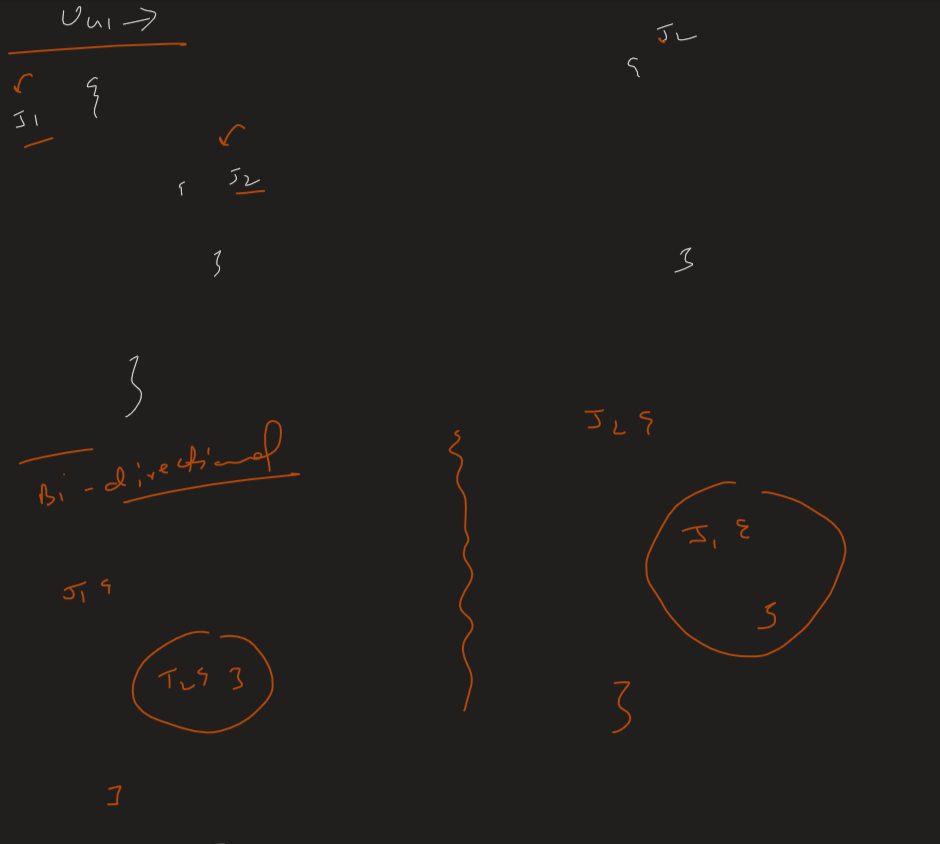 Uni →
J2
{
J1 {
{ J2
}
}
}
Bi-directional
J1 {
J2 { }
}
J2 {
J1 {
}
}